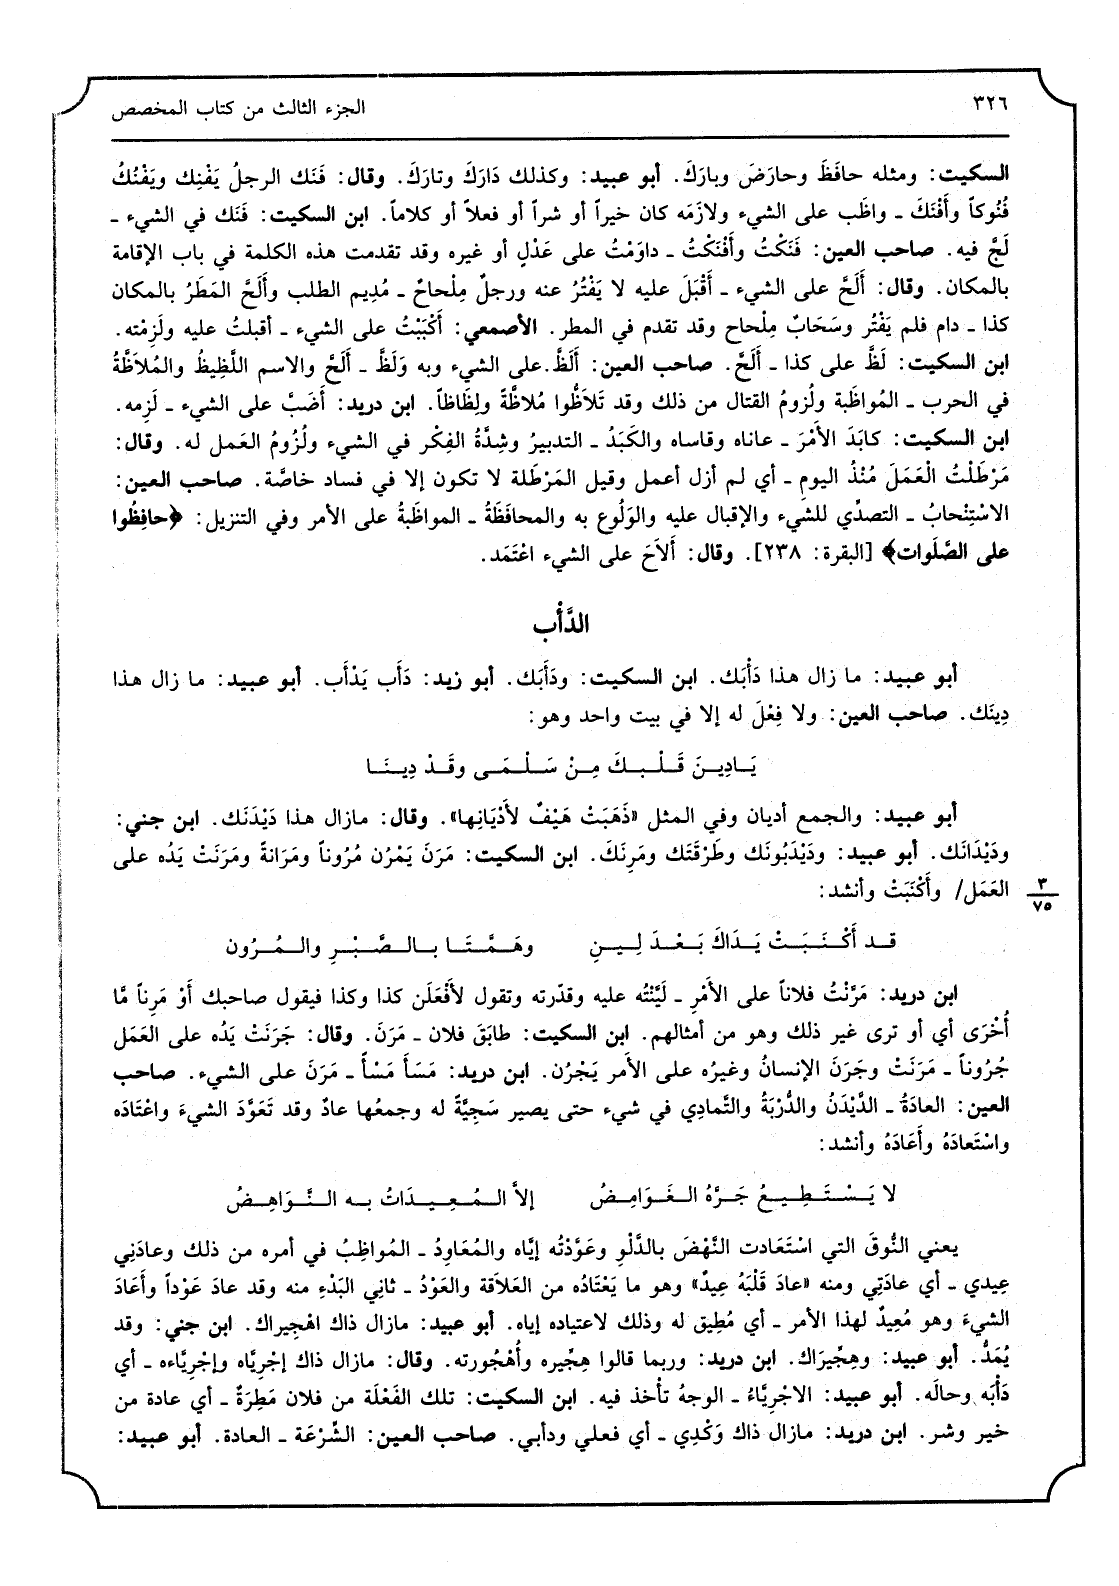 ٣٢٦
الجزء الثالث من كتاب المخصص
السكيت: ومثله حافَظَ وحارَضَ وبارَكَ. أبو عبيد: وكذلك دَارَكَ وتارَكَ. وقال: فَنَك الرجلُ يَفْنِك ويَفْنُكُ
فُنُوكاً وأَفْنَكَ ـ واظَب على الشيء ولازَمَه كان خيراً أو شراً أو فعلاً أو كلاماً. ابن السكيت: فَنَك في الشيء ـ
لَجَّ فيه. صاحب العين: فَنَكْتُ وأَفْنَكْتُ ـ داوَمْتُ على عَذْلٍ أو غيره وقد تقدمت هذه الكلمة في باب الإقامة
بالمكان. وقال: أَلَحَّ على الشيء ـ أَقْبَلَ عليه لا يَفْتُرُ عنه ورجلٌ مِلْحاحٌ ـ مُدِيم الطلب وأَلَحَّ المَطَرُ بالمكان
كذا ـ دام فلم يَفْتُر وسَحَابٌ مِلْحاح وقد تقدم في المطر. الأصمعي: أَكْبَبْتُ على الشيء ـ أقبلتُ عليه ولَزِمْته.
ابن السكيت: لَظَّ على كذا ـ أَلَحَّ. صاحب العين: أَلَظَّ على الشيء وبه وَلَظَّ ـ أَلَحَّ والاسم اللَّظِيظُ والمُلاَظَّةُ
في الحرب ـ المُواظَبة ولُزومُ القتال من ذلك وقد تَلاَظُّوا مُلاظَّةً ولِظَاظاً. ابن دريد: أَضَبَّ على الشيء ـ لَزِمه.
ابن السكيت: كابَدَ الأَمْرَ ـ عاناه وقاساه والكَبَدُ ـ التدبيرُ وشِدَّةُ الفِكْر في الشيء ولُزُومُ العَمل له. وقال:
مَرْطَلْتُ الْعَمَلَ مُنْذُ اليومِ ـ أي لم أزل أعمل وقيل المَرْطَلة لا تكون إلا في فساد خاصَّة. صاحب العين:
الاسْتِنْحابُ ـ التصدِّي للشيء والإقبال عليه والوَلُوع به والمحافَظَةُ ـ المواظَبةُ على الأمر وفي التنزيل: ﴿حافِظُوا
على الصَّلَوات﴾ [البقرة: ٢٣٨]. وقال: أَلاَحَ على الشيء اعْتَمَد.
الدَّأْب
أبو عبيد: ما زال هذا دَأْبَك. ابن السكيت: ودَأَبَك. أبو زيد: دَأَب يَدْأَب. أبو عبيد: ما زال هذا
دِينَك. صاحب العين: ولا فِعْلَ له إلا في بيت واحد وهو:
يَـادِيـنَ قَـلْـبـكَ مِـنْ سَـلْـمَـى وقَـدْ دِيـنَـا
أبو عبيد: والجمع أديان وفي المثل «ذَهَبَتْ هَيْفٌ لأَدْيَانِها». وقال: مازال هذا دَيْدَنَك. ابن جني:
ودَيْدَانَك. أبو عبيد: ودَيْدَبُونَك وطَرْقَتَك ومَرِنَكَ. ابن السكيت: مَرَنَ يَمْرُن مُرُوناً ومَرَانةً ومَرَنَتْ يَدُه على
العَمَل/ وأَكْنَبَتْ وأنشد:
٣
٧٥
قـد أَكْـنَـبَـتْ يَـدَاكَ بَـعْـدَ لِـيـنِ وهَـمَّـتَـا بـالـصَّـبْـرِ والـمُـرُون
ابن دريد: مَرَّنْتُ فلاناً على الأَمْرِ ـ لَيَّنْته عليه وقدّرته وتقول لأَفْعَلَن كذا وكذا فيقول صاحبك أَوْ مَرِناً مَّا
أُخْرَى أي أو ترى غير ذلك وهو من أمثالهم. ابن السكيت: طابَقَ فلان ـ مَرَنَ. وقال: جَرَنَتْ يَدُه على العَمَل
جُرُوناً ـ مَرَنَتْ وجَرَنَ الإنسانُ وغيرُه على الأَمر يَجْرُن. ابن دريد: مَسَأَ مَسْأً ـ مَرَنَ على الشيء. صاحب
العين: العادَةُ ـ الدَّيْدَنُ والدُّرْبَةُ والتَّمادِي في شيء حتى يصير سَجِيَّةً له وجمعُها عادٌ وقد تَعَوَّدَ الشيءَ واعْتَادَه
واسْتَعادَهُ وأَعَادَهُ وأنشد:
لا يَـسْـتَـطِـيـعُ جَـرَّهُ الـغَـوَامِـضُ إلاَّ الـمُـعِـيـدَاتُ بـه الـنَّـوَاهِـضُ
يعني النُّوقَ التي اسْتَعَادت النَّهْضَ بالدَّلْوِ وعَوَّدْتُه إيَّاه والمُعَاوِدُ ـ المُواظِبُ في أمره من ذلك وعادَنِي
عِيدي ـ أي عادَتِي ومنه «عادَ قَلْبَهُ عِيدٌ» وهو ما يَعْتَادُه من العَلاَقة والعَوْدُ ـ ثانِي البَدْءِ منه وقد عادَ عَوْداً وأَعَادَ
الشيءَ وهو مُعِيدٌ لهذا الأمر ـ أي مُطِيق له وذلك لاعتياده إياه. أبو عبيد: مازال ذاك اهْجِيراك. ابن جني: وقد
يُمَدُّ. أبو عبيد: وهِجِّيرَاك. ابن دريد: وربما قالوا هِجِّيره وأُهْجُورته. وقال: مازال ذاك إجْرِيَّاه وإجْرِيَّاءه ـ أي
دَأْبَه وحالَه. أبو عبيد: الاجْرِيَّاءُ ـ الوجهُ تأخذ فيه. ابن السكيت: تلك الفَعْلَة من فلان مَطِرَةٌ ـ أي عادة من
خير وشر. ابن دريد: مازال ذاك وَكْدِي ـ أي فعلي ودأبي. صاحب العين: الشِّرْعَة ـ العادة. أبو عبيد: